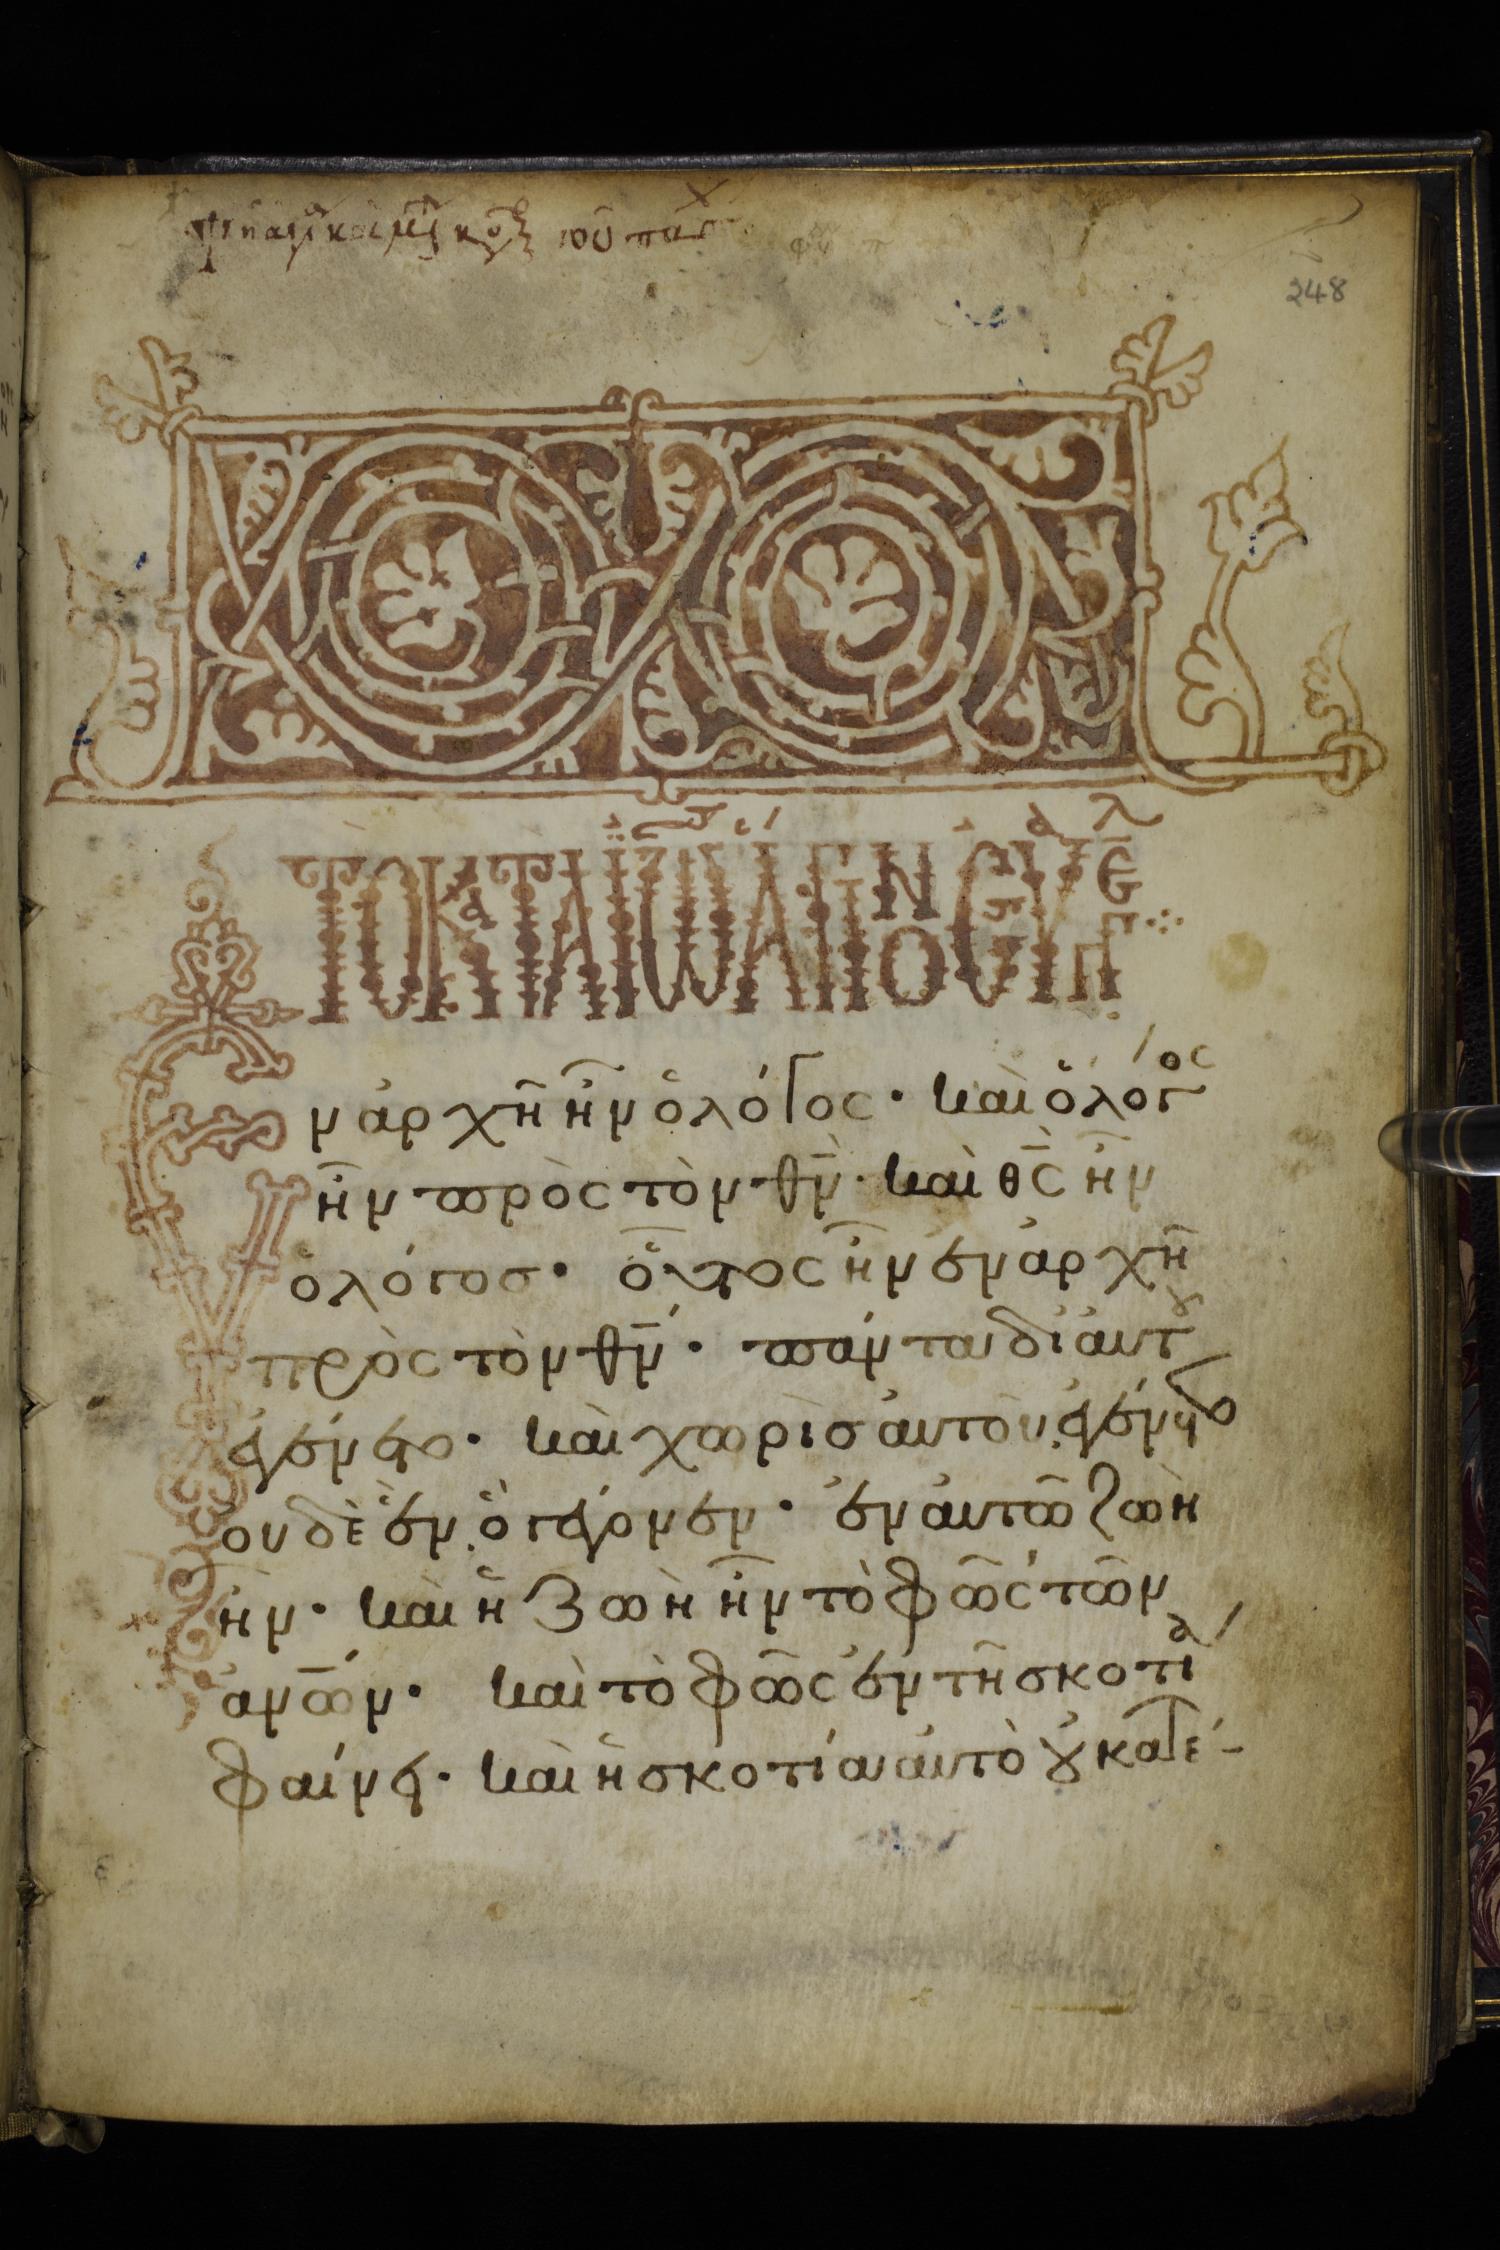 248
ΤΟ ΚΑΤΑ ΙΩΑΝΝΟΥ
Ἐν ἀρχῆ ἦν ὁ λόγος· καὶ ὁ λόγος
ἦν πρὸς τὸν θ̅ν̅· καὶ θ̅ς̅ ἦν
ὁ λόγος· οὗτος ἦν ἐν ἀρχῆ
πρὸς τὸν θ̅ν̅· πάντα δι' αὐτοῦ
ἐγένετο· καὶ χωρὶς αὐτοῦ ἐγένετο
οὐδὲ ἕν ὃ γέγονεν· ἐν αὐτῶ ζωὴ
ἦν· καὶ ἡ ζωὴ ἦν τὸ φῶς τῶν
α̅ν̅ω̅ν̅· καὶ τὸ φῶς ἐν τῆ σκοτία
φαίνει· καὶ ἡ σκοτία αὐτὸ οὐ κατέ-